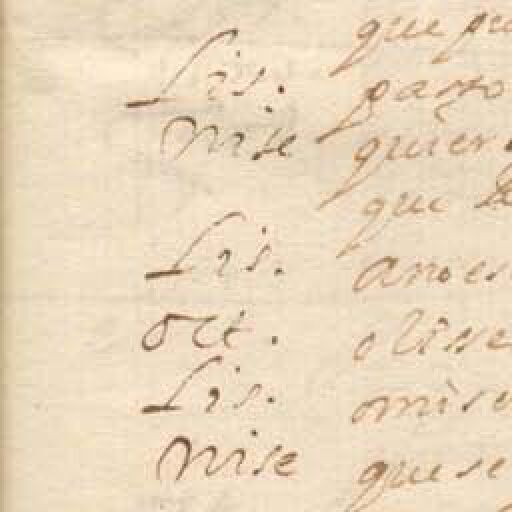 que pu
Lis. parto
Nise quier
que de
Lis. anoes
Oct. olisse
Lis. omise
Nise quese